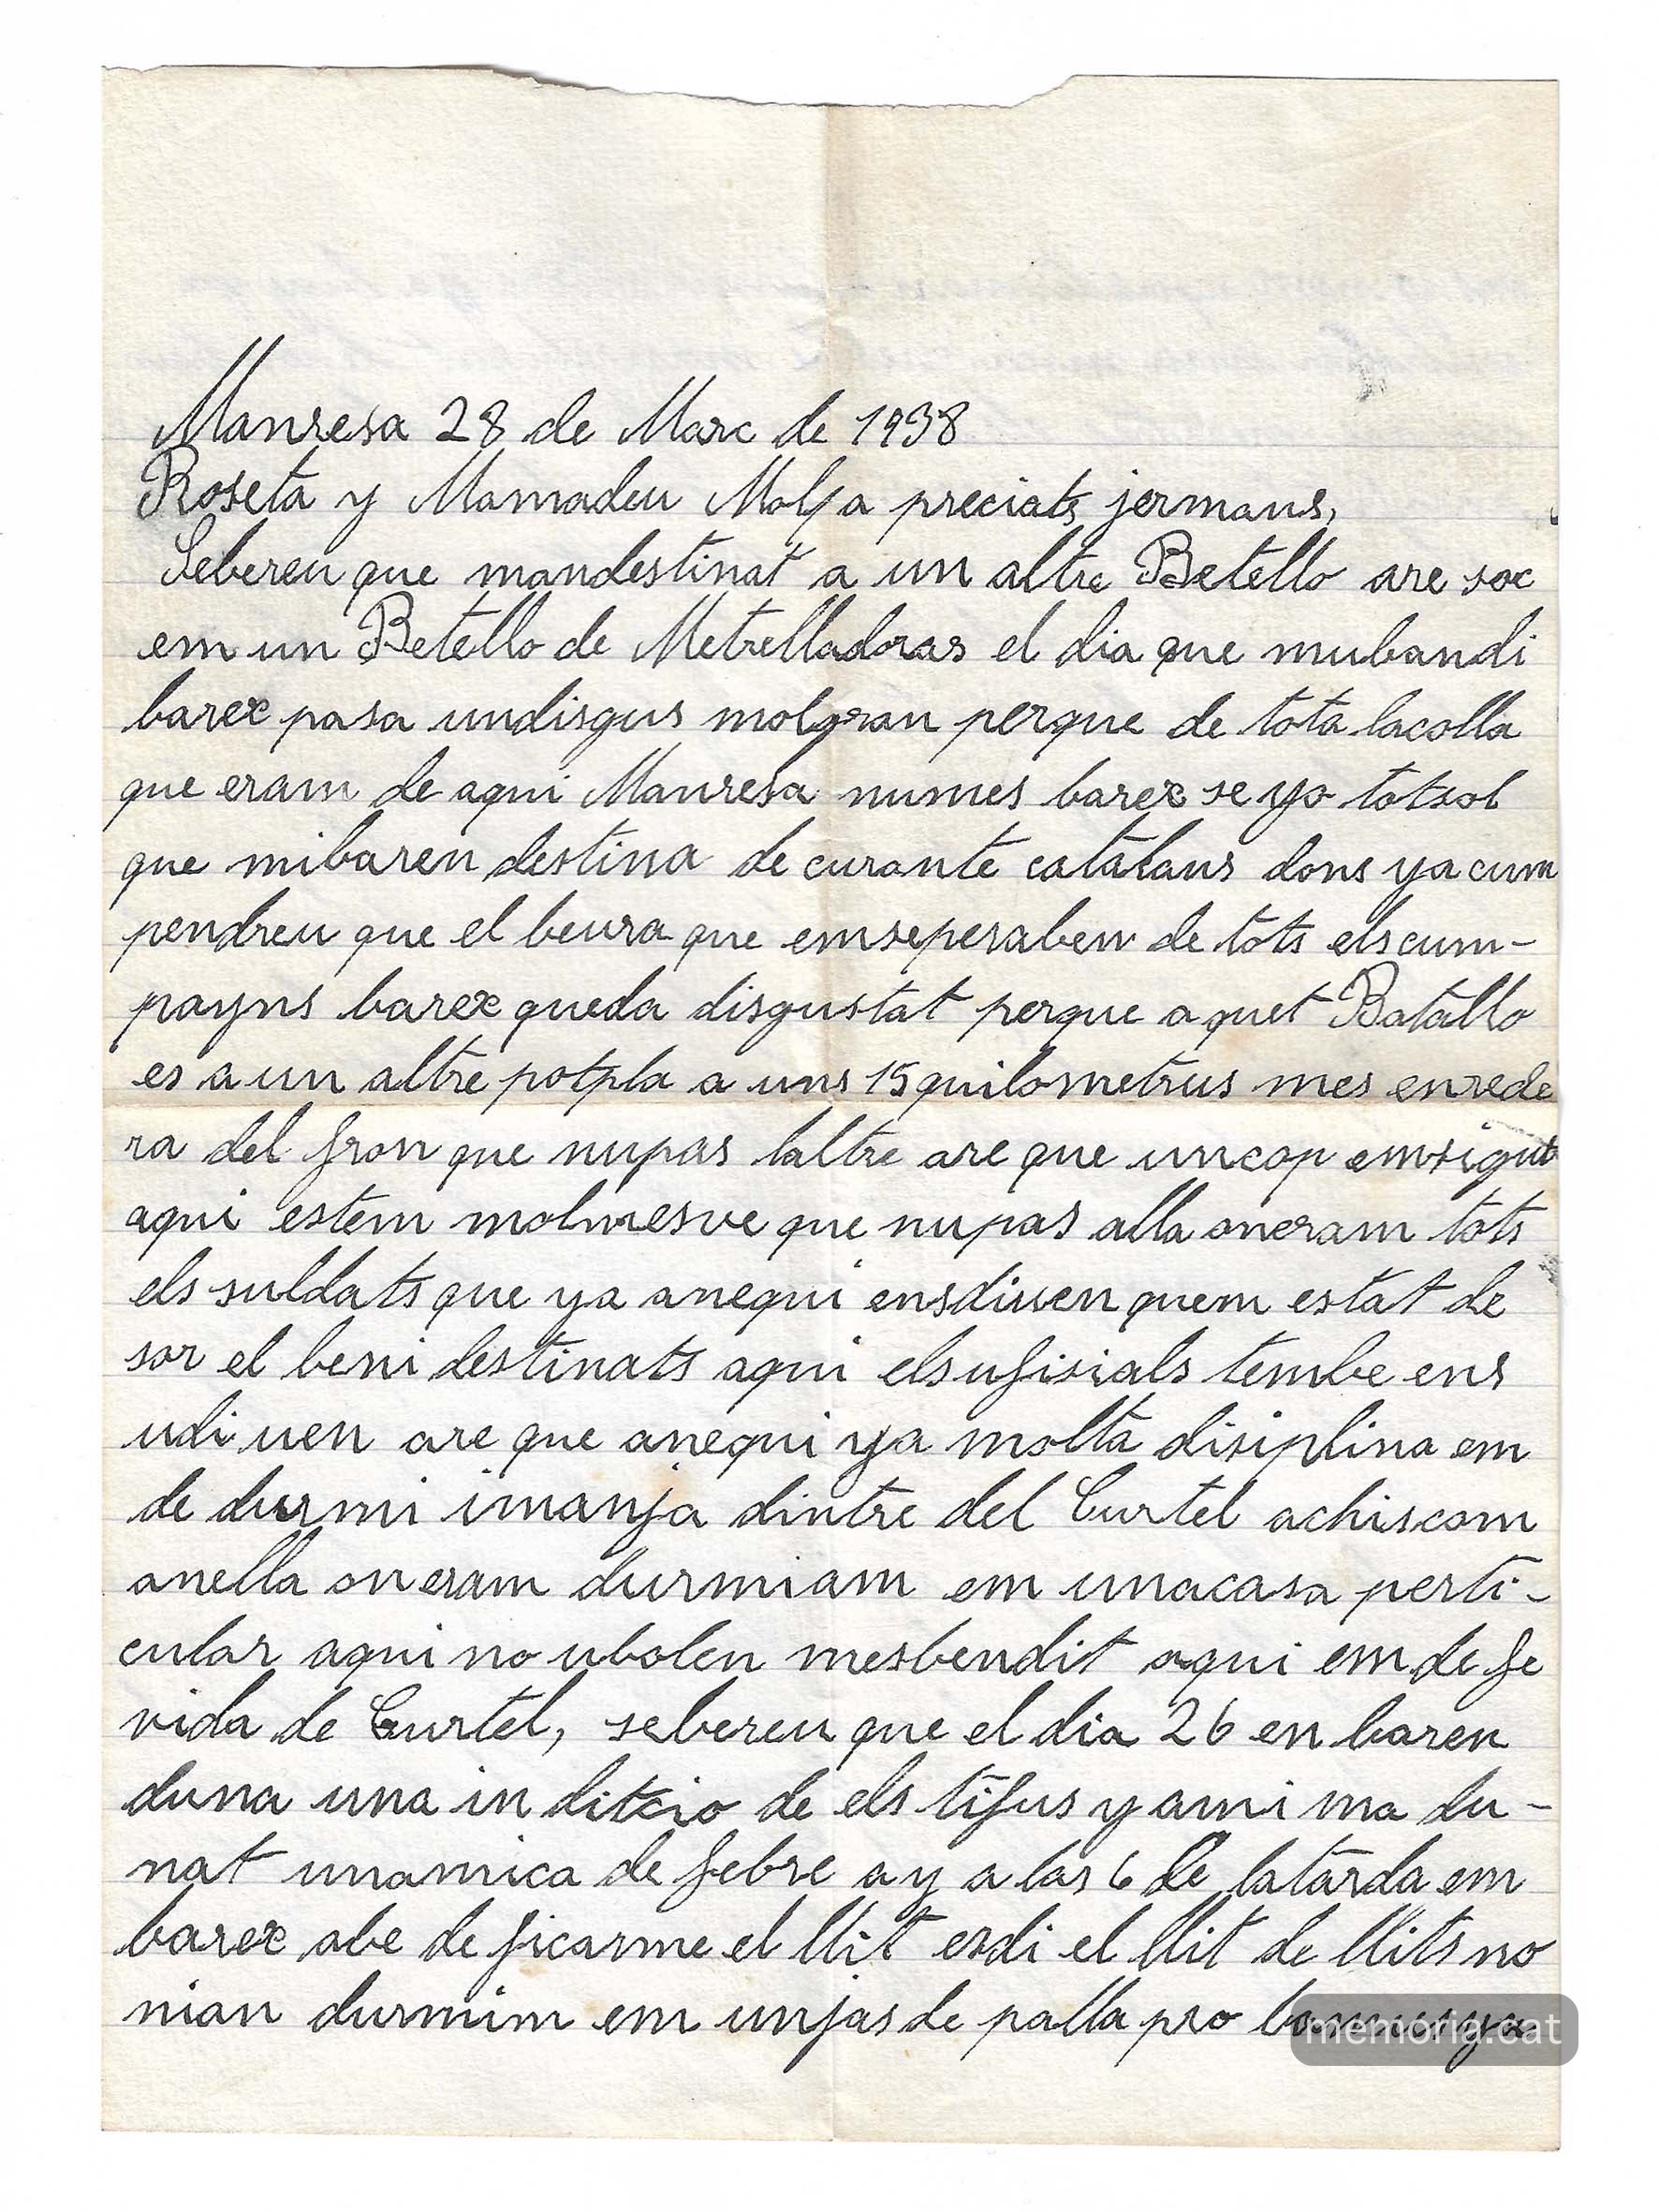 Manresa 28 de Marc de 1938
Roseta y Mamadeu Molfa preciats jermans,
Sebereu que mandestinat a un altre Betello are soc
em un Betello de Metrelladoras el dia que mubandi
barex pasa undisgus molgran perque de tota lacolla
que eram de aqui Manresa numes barex se yo totsol
que mibaren destina de curante catalans dons ya cum
pendreu que el beura que emseperaben de tots elscum-
payns barex queda disgustat perque aquet Batallo
es a un altre potpla a uns 15 quilometrus mes enrede
ra del fron que nupas laltre are que uncop emsigut
aqui estem molmesve que nupas alla oneram tots
els suldats que ya anequi ensdiuen quem estat de
sor el beni destinats aqui elsufisials tembe ens
udiuen are que anequi ya molta disiplina em
de durmi imanja dintre del Curtel achiscom
anella oneram durmiam em unacasa perti-
cular aqui no ubolen mesbendit aqui em de fe
vida de Curtel, sebereu que el dia 26 en baren
duna una inditcio de els tifus y ami ma du-
nat unamica de febre ay a las 6 de latarda em
barex abe de ficarme el llit esdi el llit de llits no
nian durmim em unjas de palla pro
memòria.cat